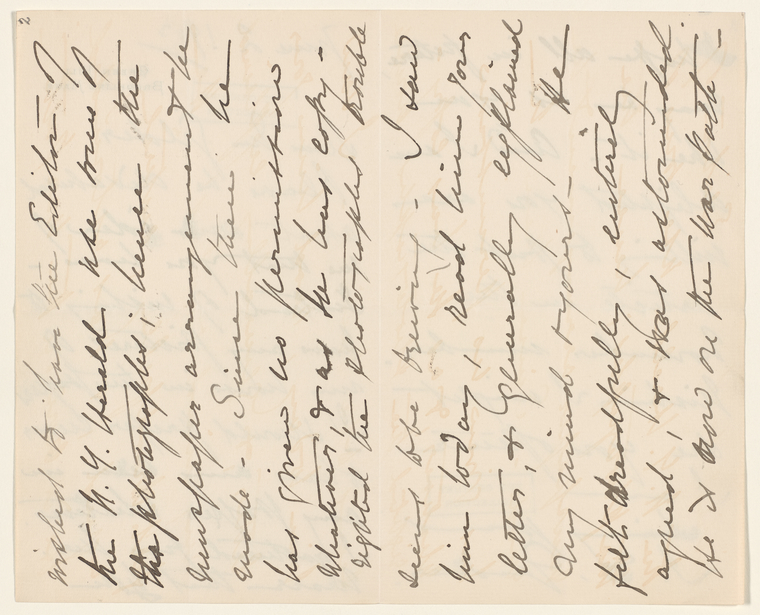 2
wished to have the Editor of
the N.Y. Herald use some of
the photographs, hence the
newspaper arrangement he
made - Since then he
has given no permission
whatever & as he has copy-
righted the photographs trouble
seems to be brewing - I saw
him today, read him your
letter, & generally explained
my mind & yours - He
felt dreadfully, entirely
agreed, & was astounded.
He is now on the war path -